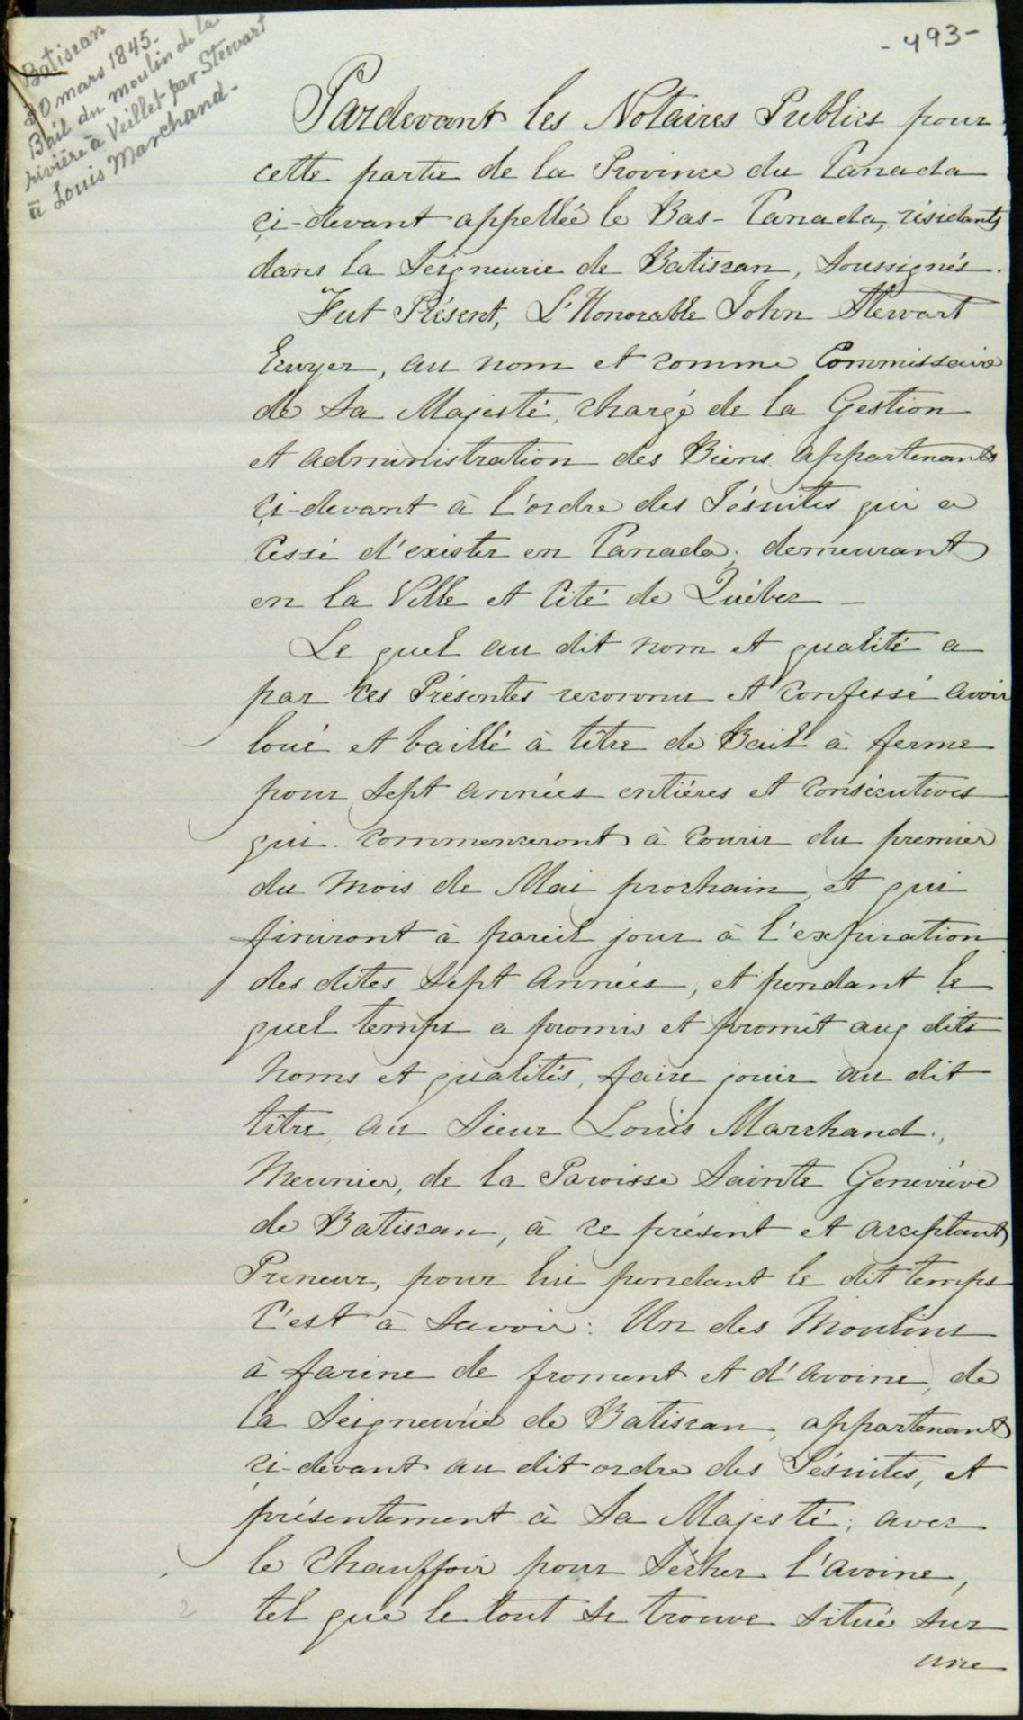 Batiscan
20 mars 1845.
Bail du moulin de la
rivière à Veillet par Stewart
à Louis Marchand.
-493-
Pardevant les Notaires Publics pour
cette partie de la Province du Canada
ci-devant appellée le Bas-Canada, résidants
dans la Seigneurie de Batiscan, Soussignés.
Fut Présent, L'Honorable John Stewart
Ecuyer, au nom et comme Commissaire
de Sa Majesté, chargé de la Gestion
et administration des Biens appartenants
ci-devant à l'ordre des Jésuites qui a
Cessé d'exister en Canada, demeurant
en la Ville et Cité de Québec
Le quel au dit nom et qualité a
par ces Présentes reconnu et Confessé avoir
loué et baillé à titre de Bail à ferme
pour Sept années entières et Consécutives
qui commenceront à Courir du premier
du mois de Mai prochain et qui
finiront à pareil jour à l'expiration
des dites Sept années, et pendant le
quel temps a promis et promit aux dits
Noms et qualités, faire jouir au dit
titre au Sieur Louis Marchand,
Meunier, de la Paroisse Sainte Geneviève
de Batiscan, à ce présent et acceptant
Preneur, pour lui pendant le dit temps
C'est à Savoir: Un des Moulins
à farine de froment et d'avoine, de
la Seigneurie de Batiscan, appartenant
ci-devant au dit ordre des Jésuites, et
présentement à Sa Majesté, avec
le Chauffoir pour Sécher l'avoine,
tel que le tout se trouve situé sur
une
2